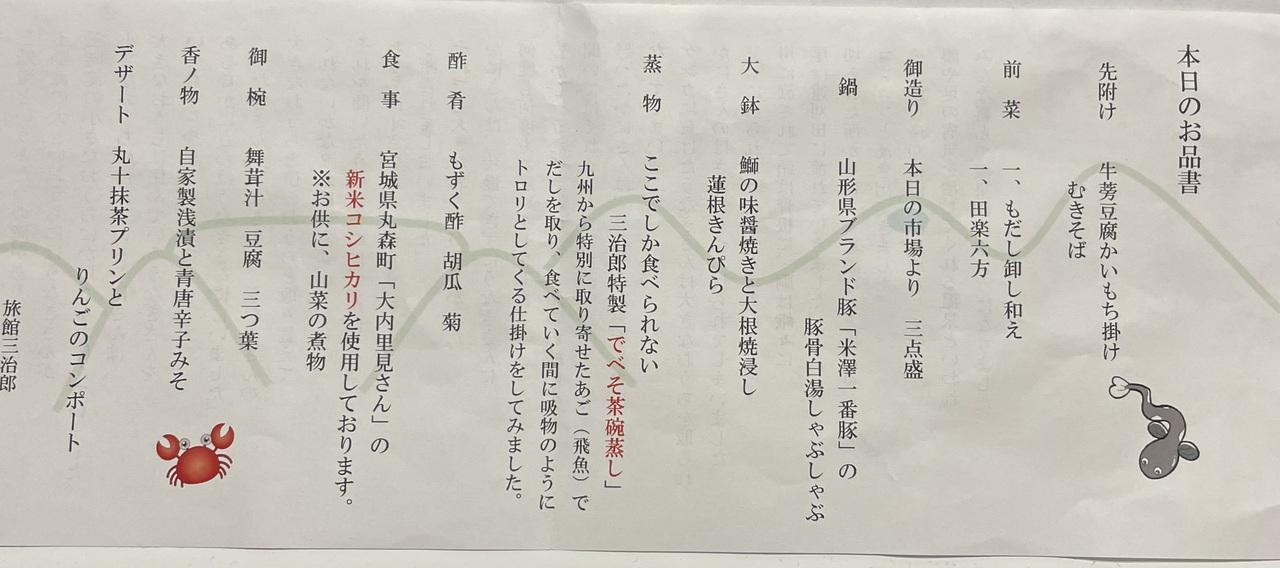 本日のお品書
先附け　牛蒡豆腐かいもち掛け
むきそば
前菜　一、もだし卸し和え
一、田楽六方
御造り　本日の市場より　三点盛
鍋　山形県ブランド豚「米澤一番豚」の
豚骨白湯しゃぶしゃぶ
大鉢　鰤の味醤焼きと大根焼浸し
蓮根きんぴら
蒸物　ここでしか食べられない
三治郎特製「でべそ茶碗蒸し」
九州から特別に取り寄せたあご（飛魚）で
だしを取り、食べていく間に吸物のように
トロリとしてくる仕掛けをしてみました。
酢肴　もずく酢　胡瓜　菊
食事　宮城県丸森町「大内里見さん」の
新米コシヒカリを使用しております。
※お供に、山菜の煮物
御椀　舞茸汁　豆腐　三つ葉
香ノ物　自家製浅漬と青唐辛子みそ
デザート　丸十抹茶プリンと
りんごのコンポート
旅館三治郎